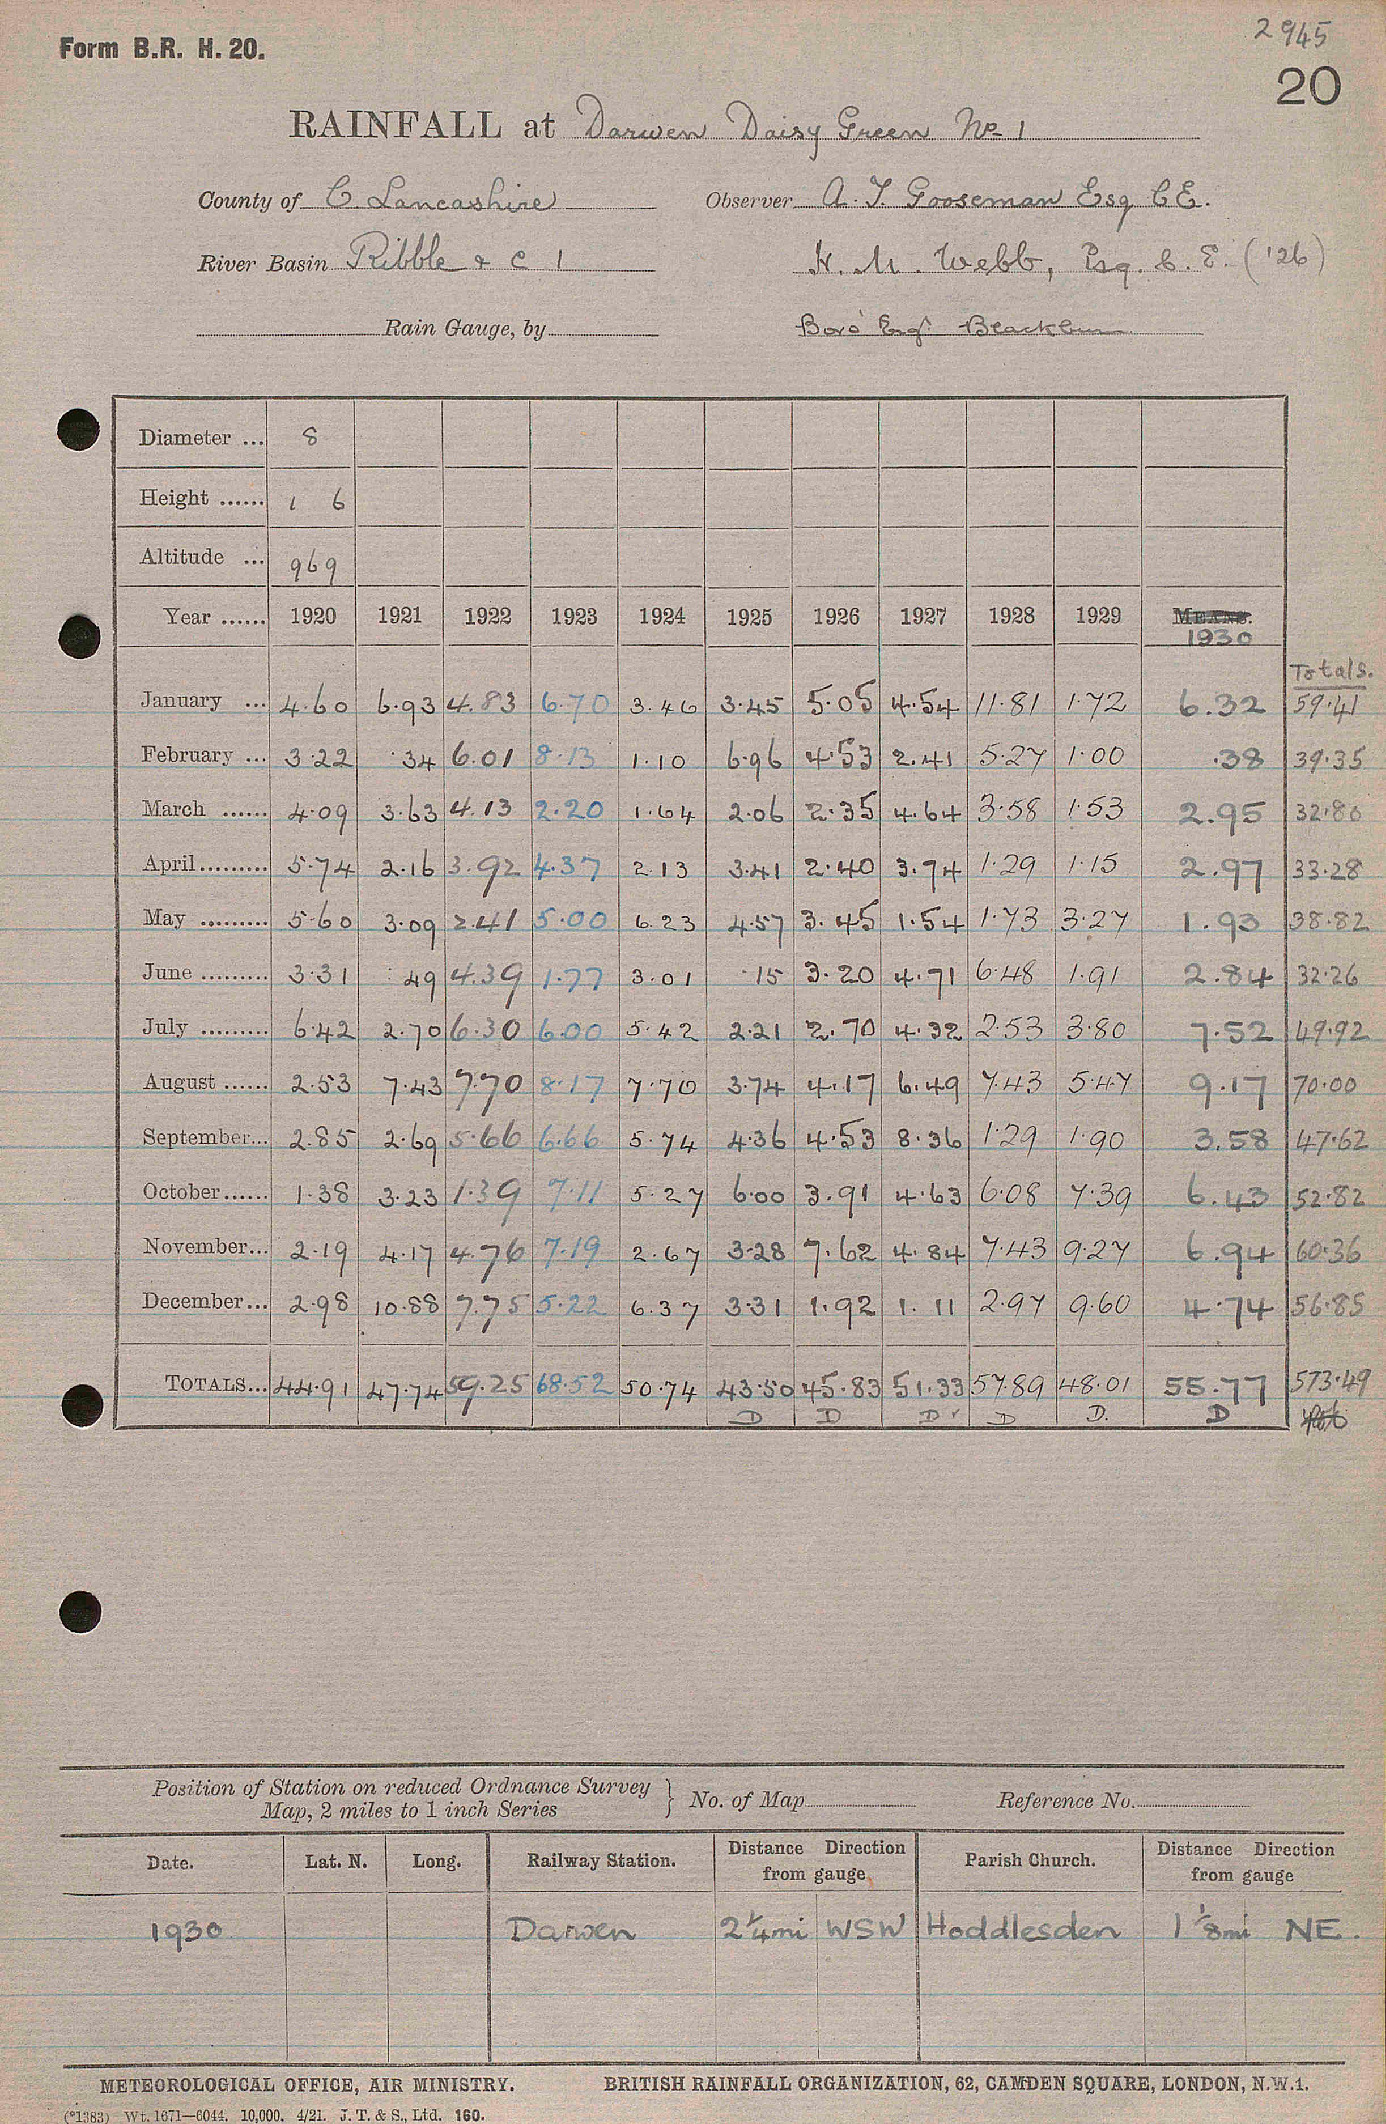 2945
Form B.R. H. 20.
20
RAINFALL at Darwen Daisy Green No 1
County of C. Lancashire Observer A. T. Gooseman Esq C.E.
River Basin Ribble & C 1 H. M. Webb, Esq. C. E. ('26)
Rain Gauge, by Boro' Engr Blackburn
Diameter ... 8
Height ...... 1 6
Altitude ... 969
Year ...... 1920 1921 1922 1923 1924 1925 1926 1927 1928 1929 MEANS. 1930
Totals.
January ... 4.60 6.93 4.83 6.70 3.46 3.45 5.05 4.54 11.81 1.72 6.32 59.41
February ... 3.22 .34 6.01 8.13 1.10 6.96 4.53 2.41 5.27 1.00 .38 39.35
March ...... 4.09 3.63 4.13 2.20 1.64 2.06 2.35 4.64 3.58 1.53 2.95 32.80
April......... 5.74 2.16 3.92 4.37 2.13 3.41 2.40 3.74 1.29 1.15 2.97 33.28
May ......... 5.60 3.09 2.41 5.00 6.23 4.57 3.45 1.54 1.73 3.27 1.93 38.82
June ......... 3.31 .49 4.39 1.77 3.01 .15 3.20 4.71 6.48 1.91 2.84 32.26
July ......... 6.42 2.70 6.30 6.00 5.42 2.21 2.70 4.32 2.53 3.80 7.52 49.92
August ...... 2.53 7.43 7.70 8.17 7.70 3.74 4.17 6.49 7.43 5.47 9.17 70.00
September... 2.85 2.69 5.66 6.66 5.74 4.36 4.53 8.36 1.29 1.90 3.58 47.62
October...... 1.38 3.23 1.39 7.11 5.27 6.00 3.91 4.63 6.08 7.39 6.43 52.82
November... 2.19 4.17 4.76 7.19 2.67 3.28 7.62 4.84 7.43 9.27 6.94 60.36
December... 2.98 10.88 7.75 5.22 6.37 3.31 1.92 1.11 2.97 9.60 4.74 56.85
TOTALS... 44.91 47.74 59.25 68.52 50.74 43.50 45.83 51.33 57.89 48.01 55.77 573.49
D D D D D. D
Position of Station on reduced Ordnance Survey
Map, 2 miles to 1 inch Series } No. of Map Reference No.
Date. Lat. N. Long. Railway Station. Distance Direction from gauge Parish Church. Distance Direction from gauge
1930 Darwen 2¼mi WSW Hoddlesden 1⅛mi NE.
METEOROLOGICAL OFFICE, AIR MINISTRY. BRITISH RAINFALL ORGANIZATION, 62, CAMDEN SQUARE, LONDON, N.W.1.
(*1383) Wt. 1671—6044. 10,000. 4/21. J. T. & S., Ltd. 160.